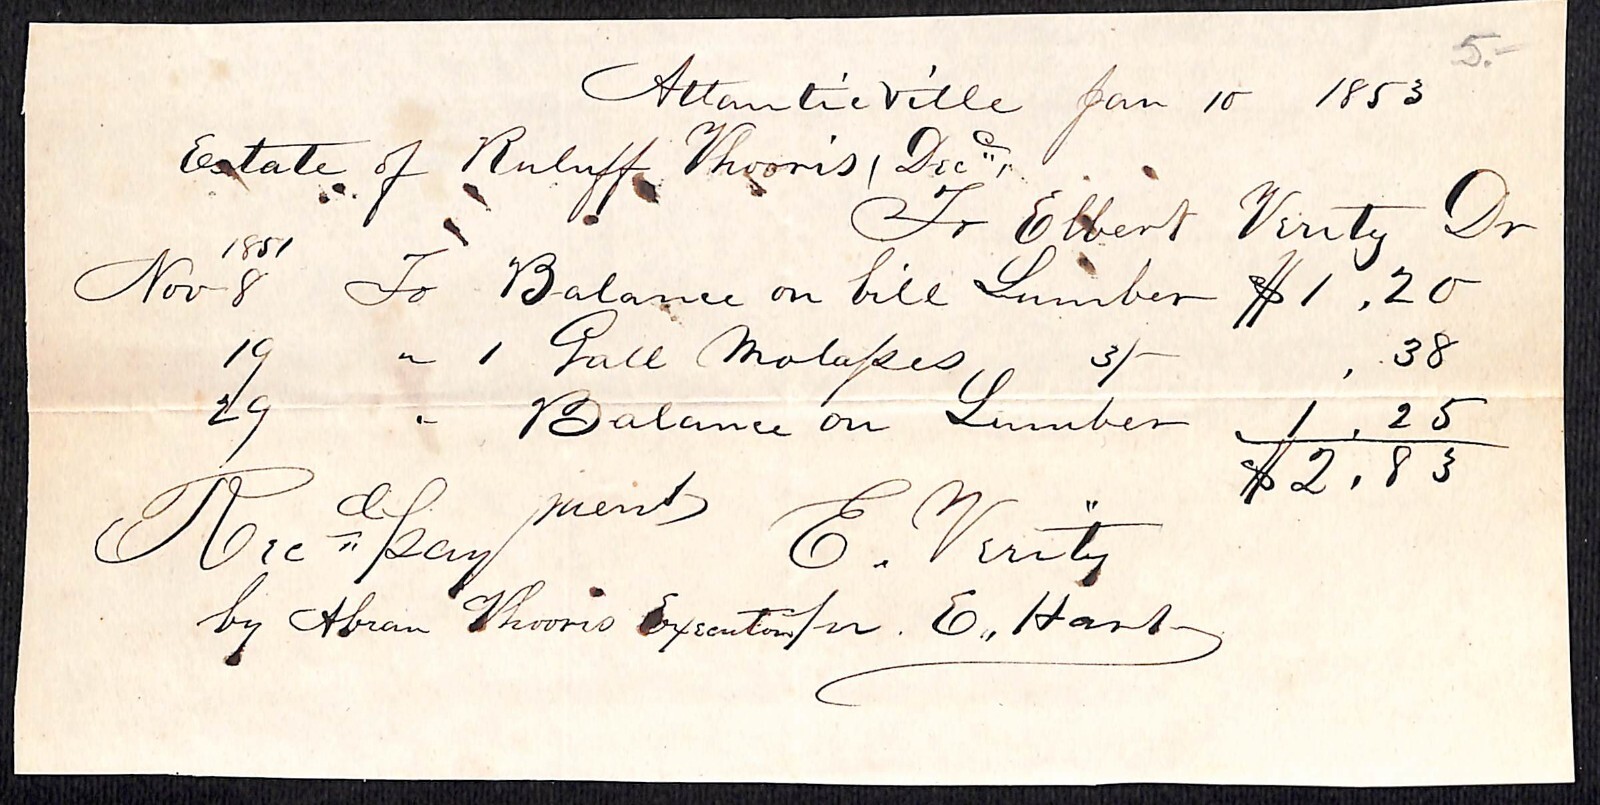 5.-
Atlanticville Jan 10 1853
Estate of Ruluff Vhooris, Decd
To Elbert Verity Dr
1851
Nov 8 To Balance on bill Lumber $1,20
19 " 1 Gall Molasses 3/- ,38
29 " Balance on Lumber 1,25
$2,83
Recd payment E. Verity
by Abram Vhooris Executor pr. E. Hart